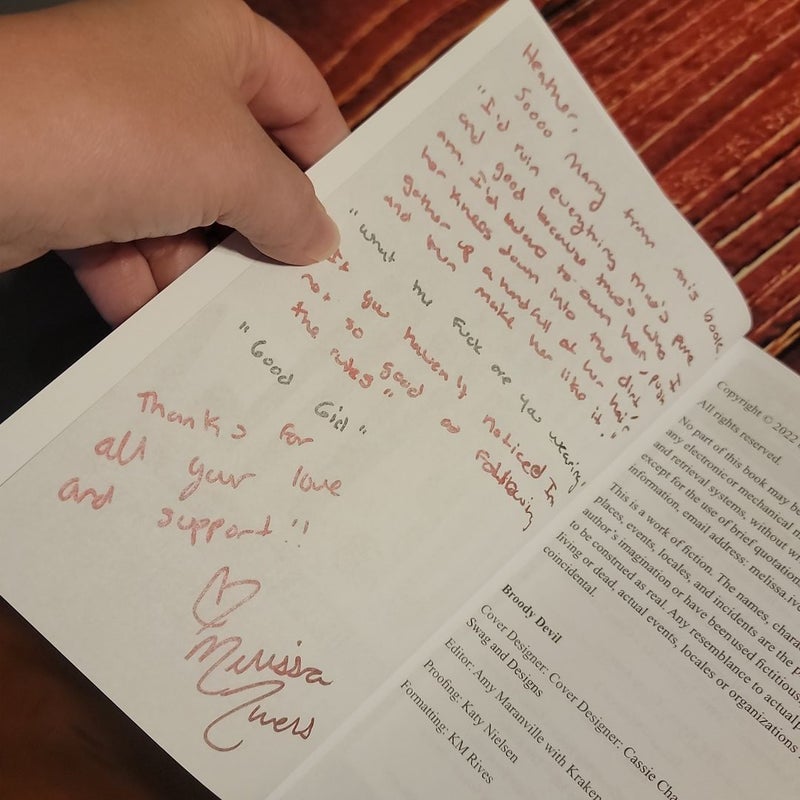 Heather,
Soooo many from this book
"I'd ruin everything that's pure
and good because that's who I
am. I'd want to own her, push
her knees down into the dirt,
gather up a handfull of her hair,
and then make her like it."
"What the fuck are you wearing?
If you haven't noticed I'm
not so good at following
the rules"
"Good Girl"
Thanks for
all your love
and support!!
Melissa
Ivers
Copyright © 2022
All rights reserved.
No part of this book may be
any electronic or mechanical
and retrieval systems, without
except for the use of brief
information, email address:
This is a work of fiction. The names,
places, events, locales, and incidents are the
author's imagination or have been used
to be construed as real. Any resemblance to actual
living or dead, actual events, locales or organizations
coincidental.
Broody Devil
Cover Designer: Cover Designer: Cassie
Swag and Designs
Editor: Amy Maranville with Kraken
Proofing: Katy Nielsen
Formatting: KM Rives